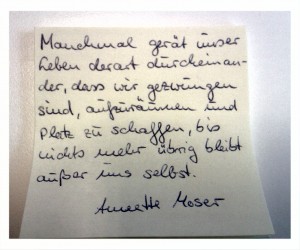 Manchmal gerät unser
Leben derart durcheinan-
der, dass wir gezwungen
sind, aufzuräumen und
Platz zu schaffen, bis
nichts mehr übrig bleibt
außer uns selbst.
Annette Moser